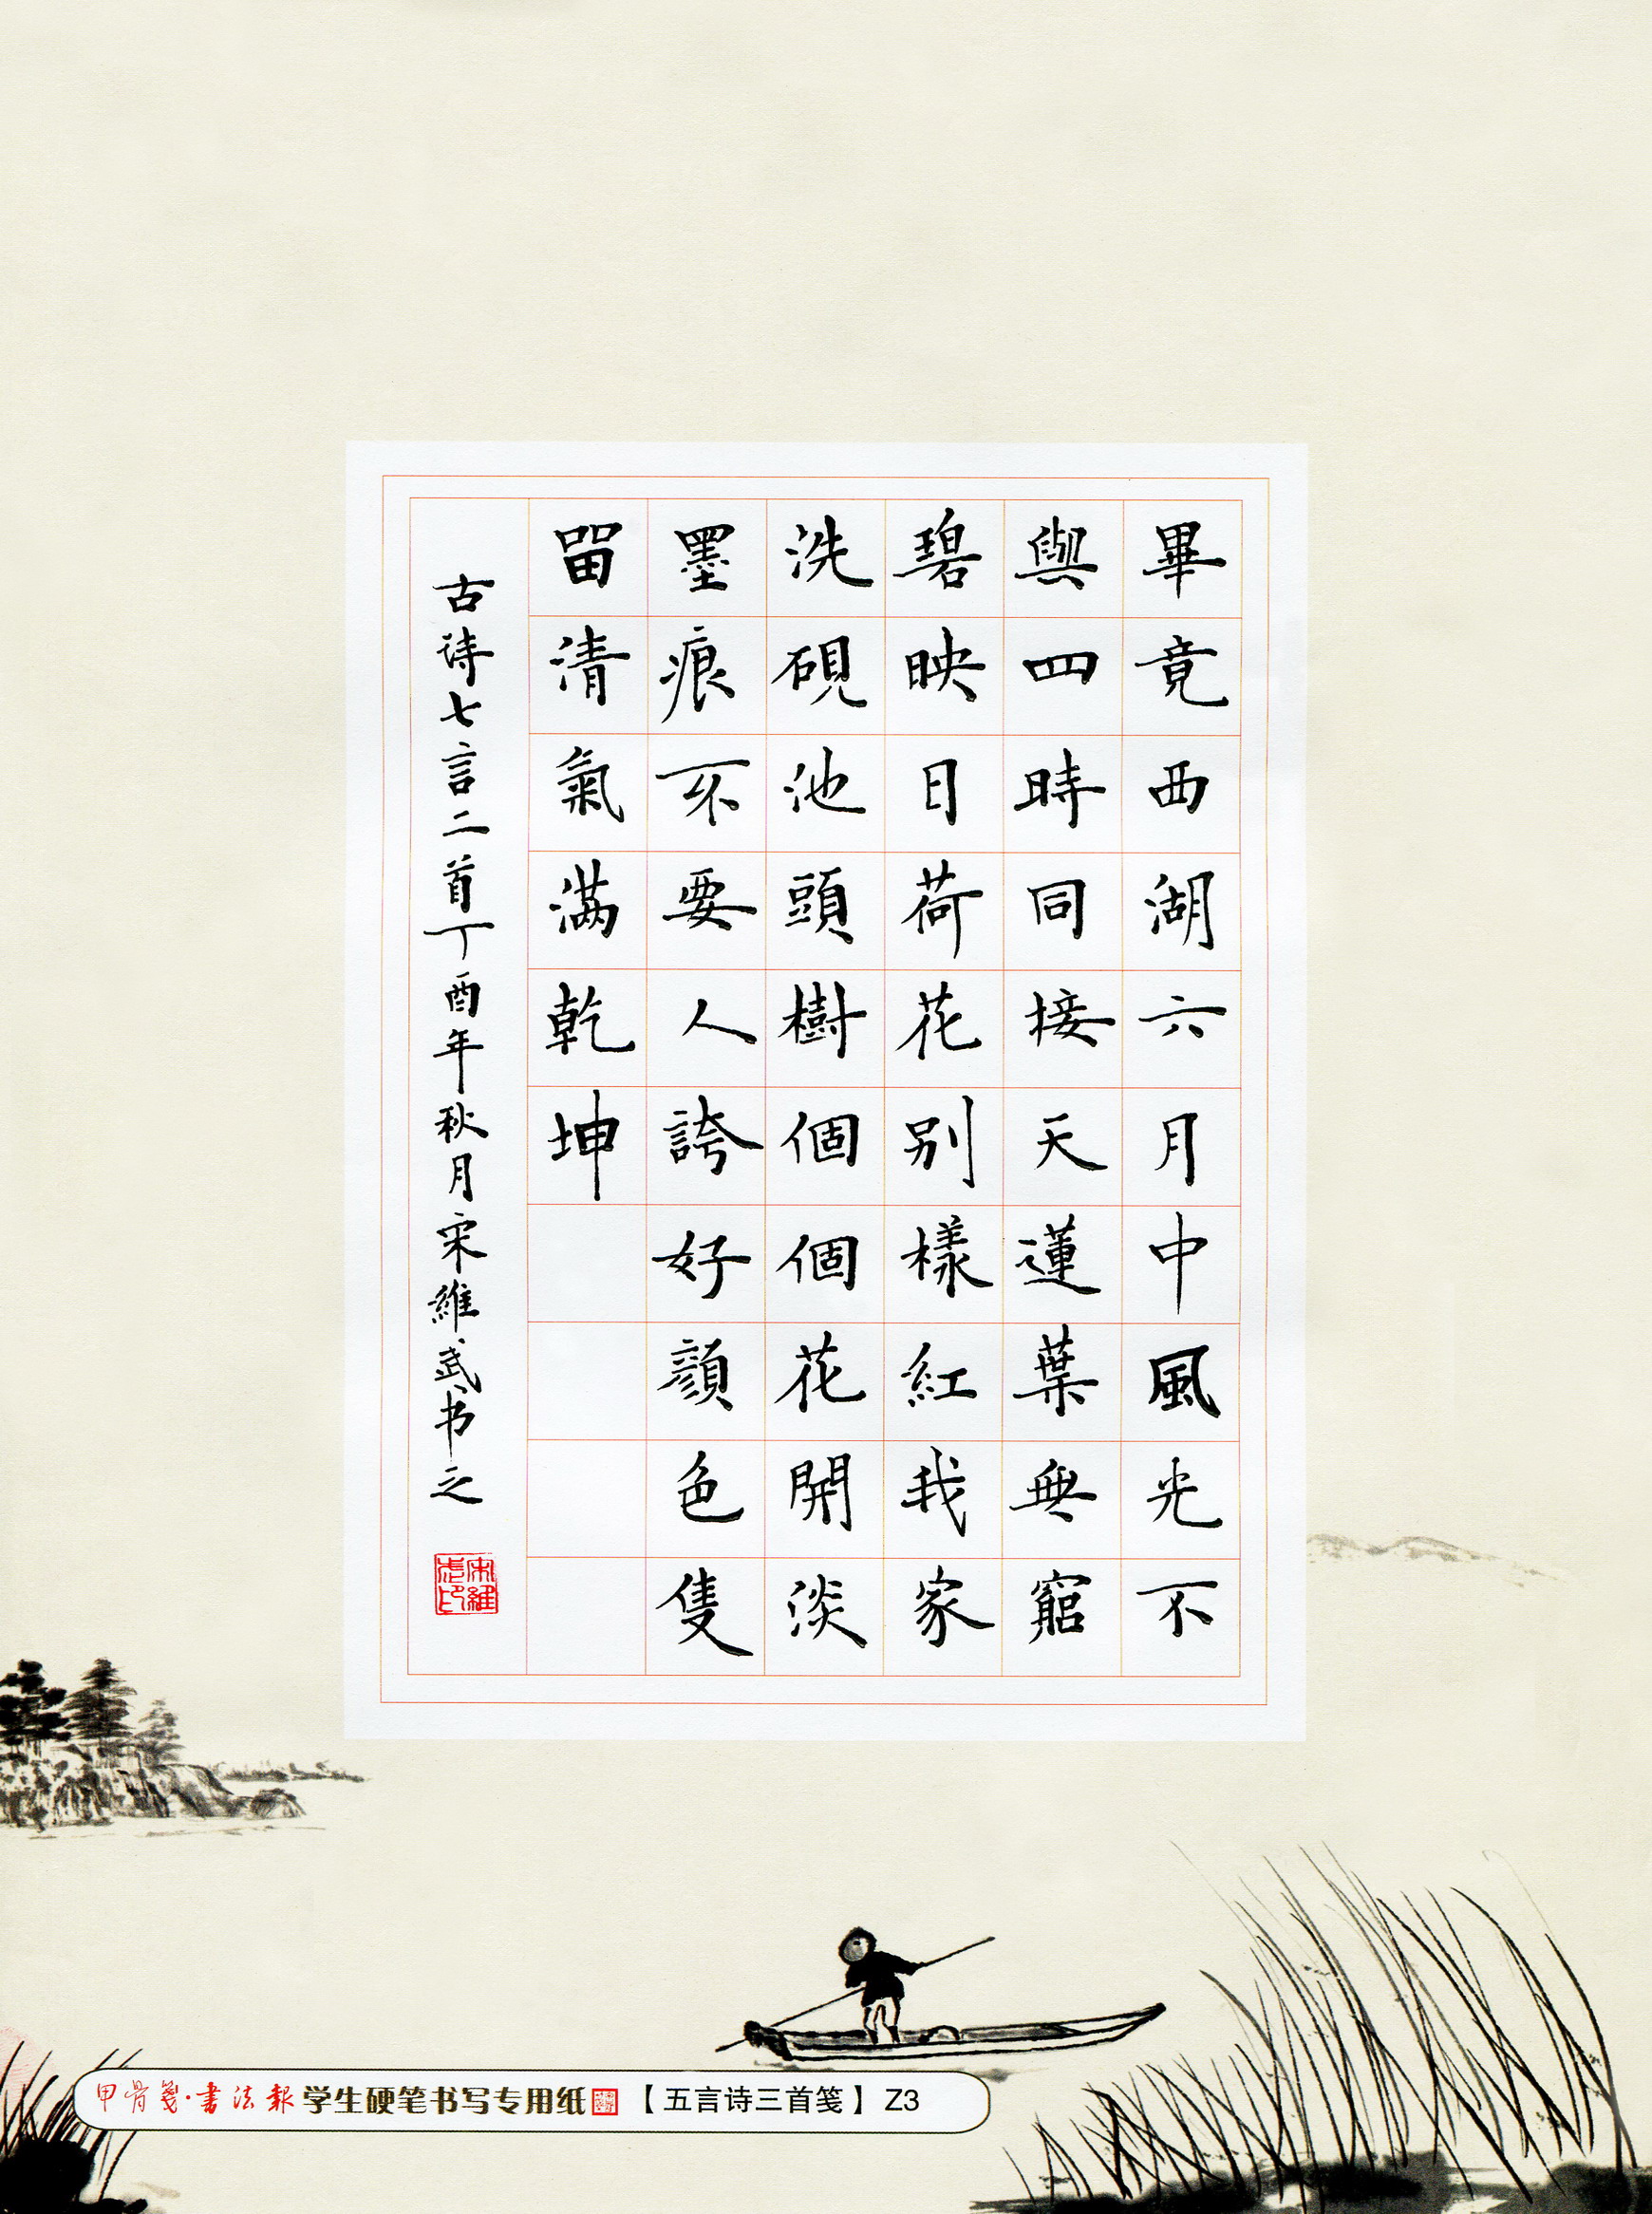 畢竟西湖六月中風光不
與四時同接天蓮葉無窮
碧映日荷花别樣紅我家
洗硯池頭樹個個花開淡
墨痕不要人誇好顔色隻
留清氣滿乾坤
古诗七言二首丁酉年秋月宋維武书之
宋維武印
甲骨箋·書法報 学生硬笔书写专用纸 【五言诗三首笺】 Z3